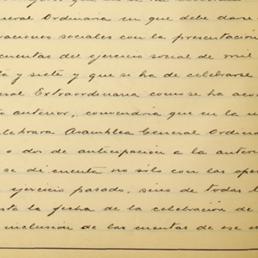 neral Ordinaria en que debe darse
raciones sociales con la presentación
cuentas del ejercicio social de mil
ta y siete y que se ha de celebrarse
eral Extraordinaria como se ha aco
to anterior, convendria que en la m
elebrara Asamblea General Ordina
o dos de anticipación a la anterio
se dé cuenta no sólo con las oper
ejercicio pasado, sino de todas l
sta la fecha de la celebración de
inclusión de las cuentas de ese